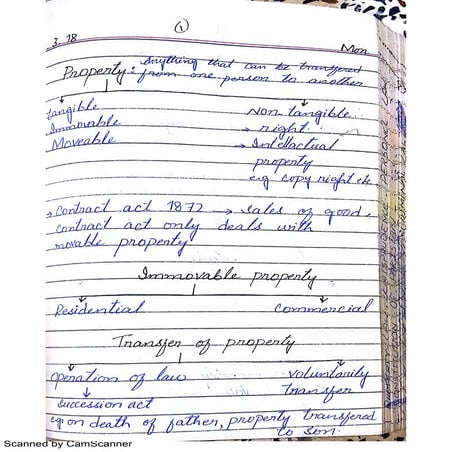 ①
3.18 Mon
Anything that can be transferred
Property: from one person to another
tangible Non tangible
Immovable → right
Moveable → Intellactual
property
eg copy right etc.
→ Contract act 1872 → sales of good.
contract act only deals with
movable property
Immovable property
Residential commercial
Transfer of property
operation of law voluntarily
transfer
succession act
eg: on death of father, property transferred
to son.
Scanned by CamScanner